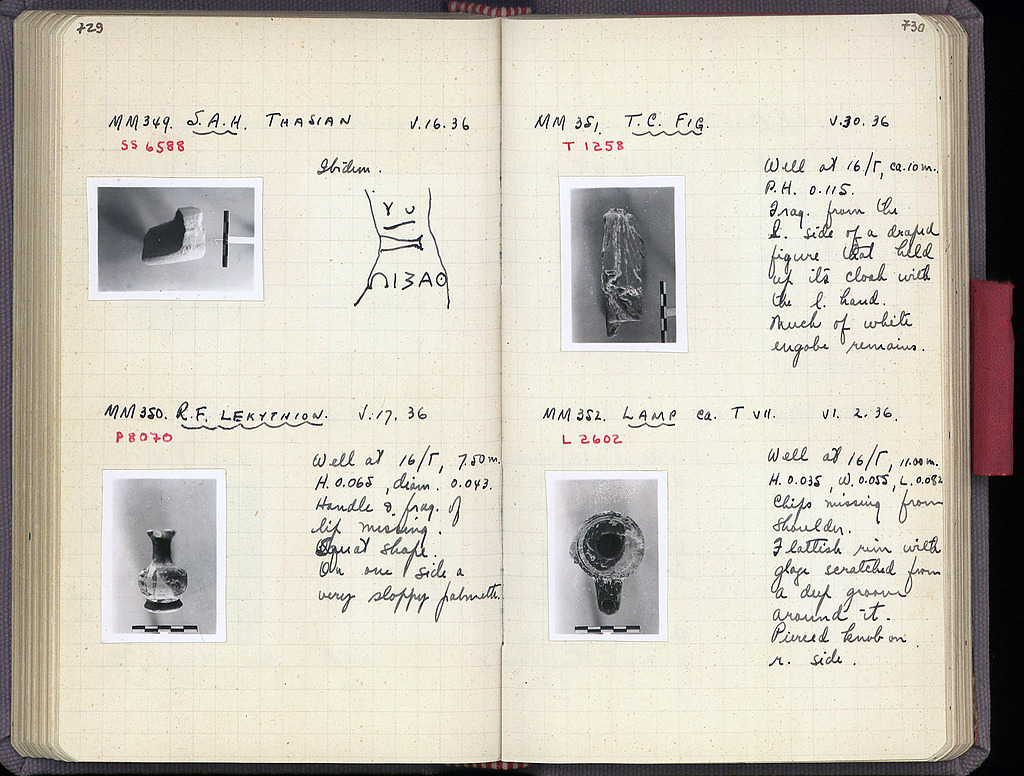 729
MM 349. S.A.H. THASIAN V.16.36
SS 6588
Ibidem.
ΠΙΘΑΟ
MM 350. R.F. LEKYTHION. V.17.36
P 8070
Well at 16/Γ, 7.50 m.
H. 0.065, diam. 0.043.
Handle & frag. of
lip missing.
Squat shape.
On one side a
very sloppy palmette.
730
MM 351. T.C. FIG. V.30.36
T 1258
Well at 16/Γ, ca. 10 m.
P.H. 0.115.
Frag. from the
l. side of a draped
figure that held
up its cloak with
the l. hand.
Much of white
engobe remains.
MM 352. LAMP ca. T VII. VI. 2.36
L 2602
Well at 16/Γ, 11.00 m.
H. 0.035, W. 0.055, L. 0.082
Chips missing from
shoulder.
Flattish rim with
glaze scratched from
a deep groove
around it.
Pierced knob on
r. side.